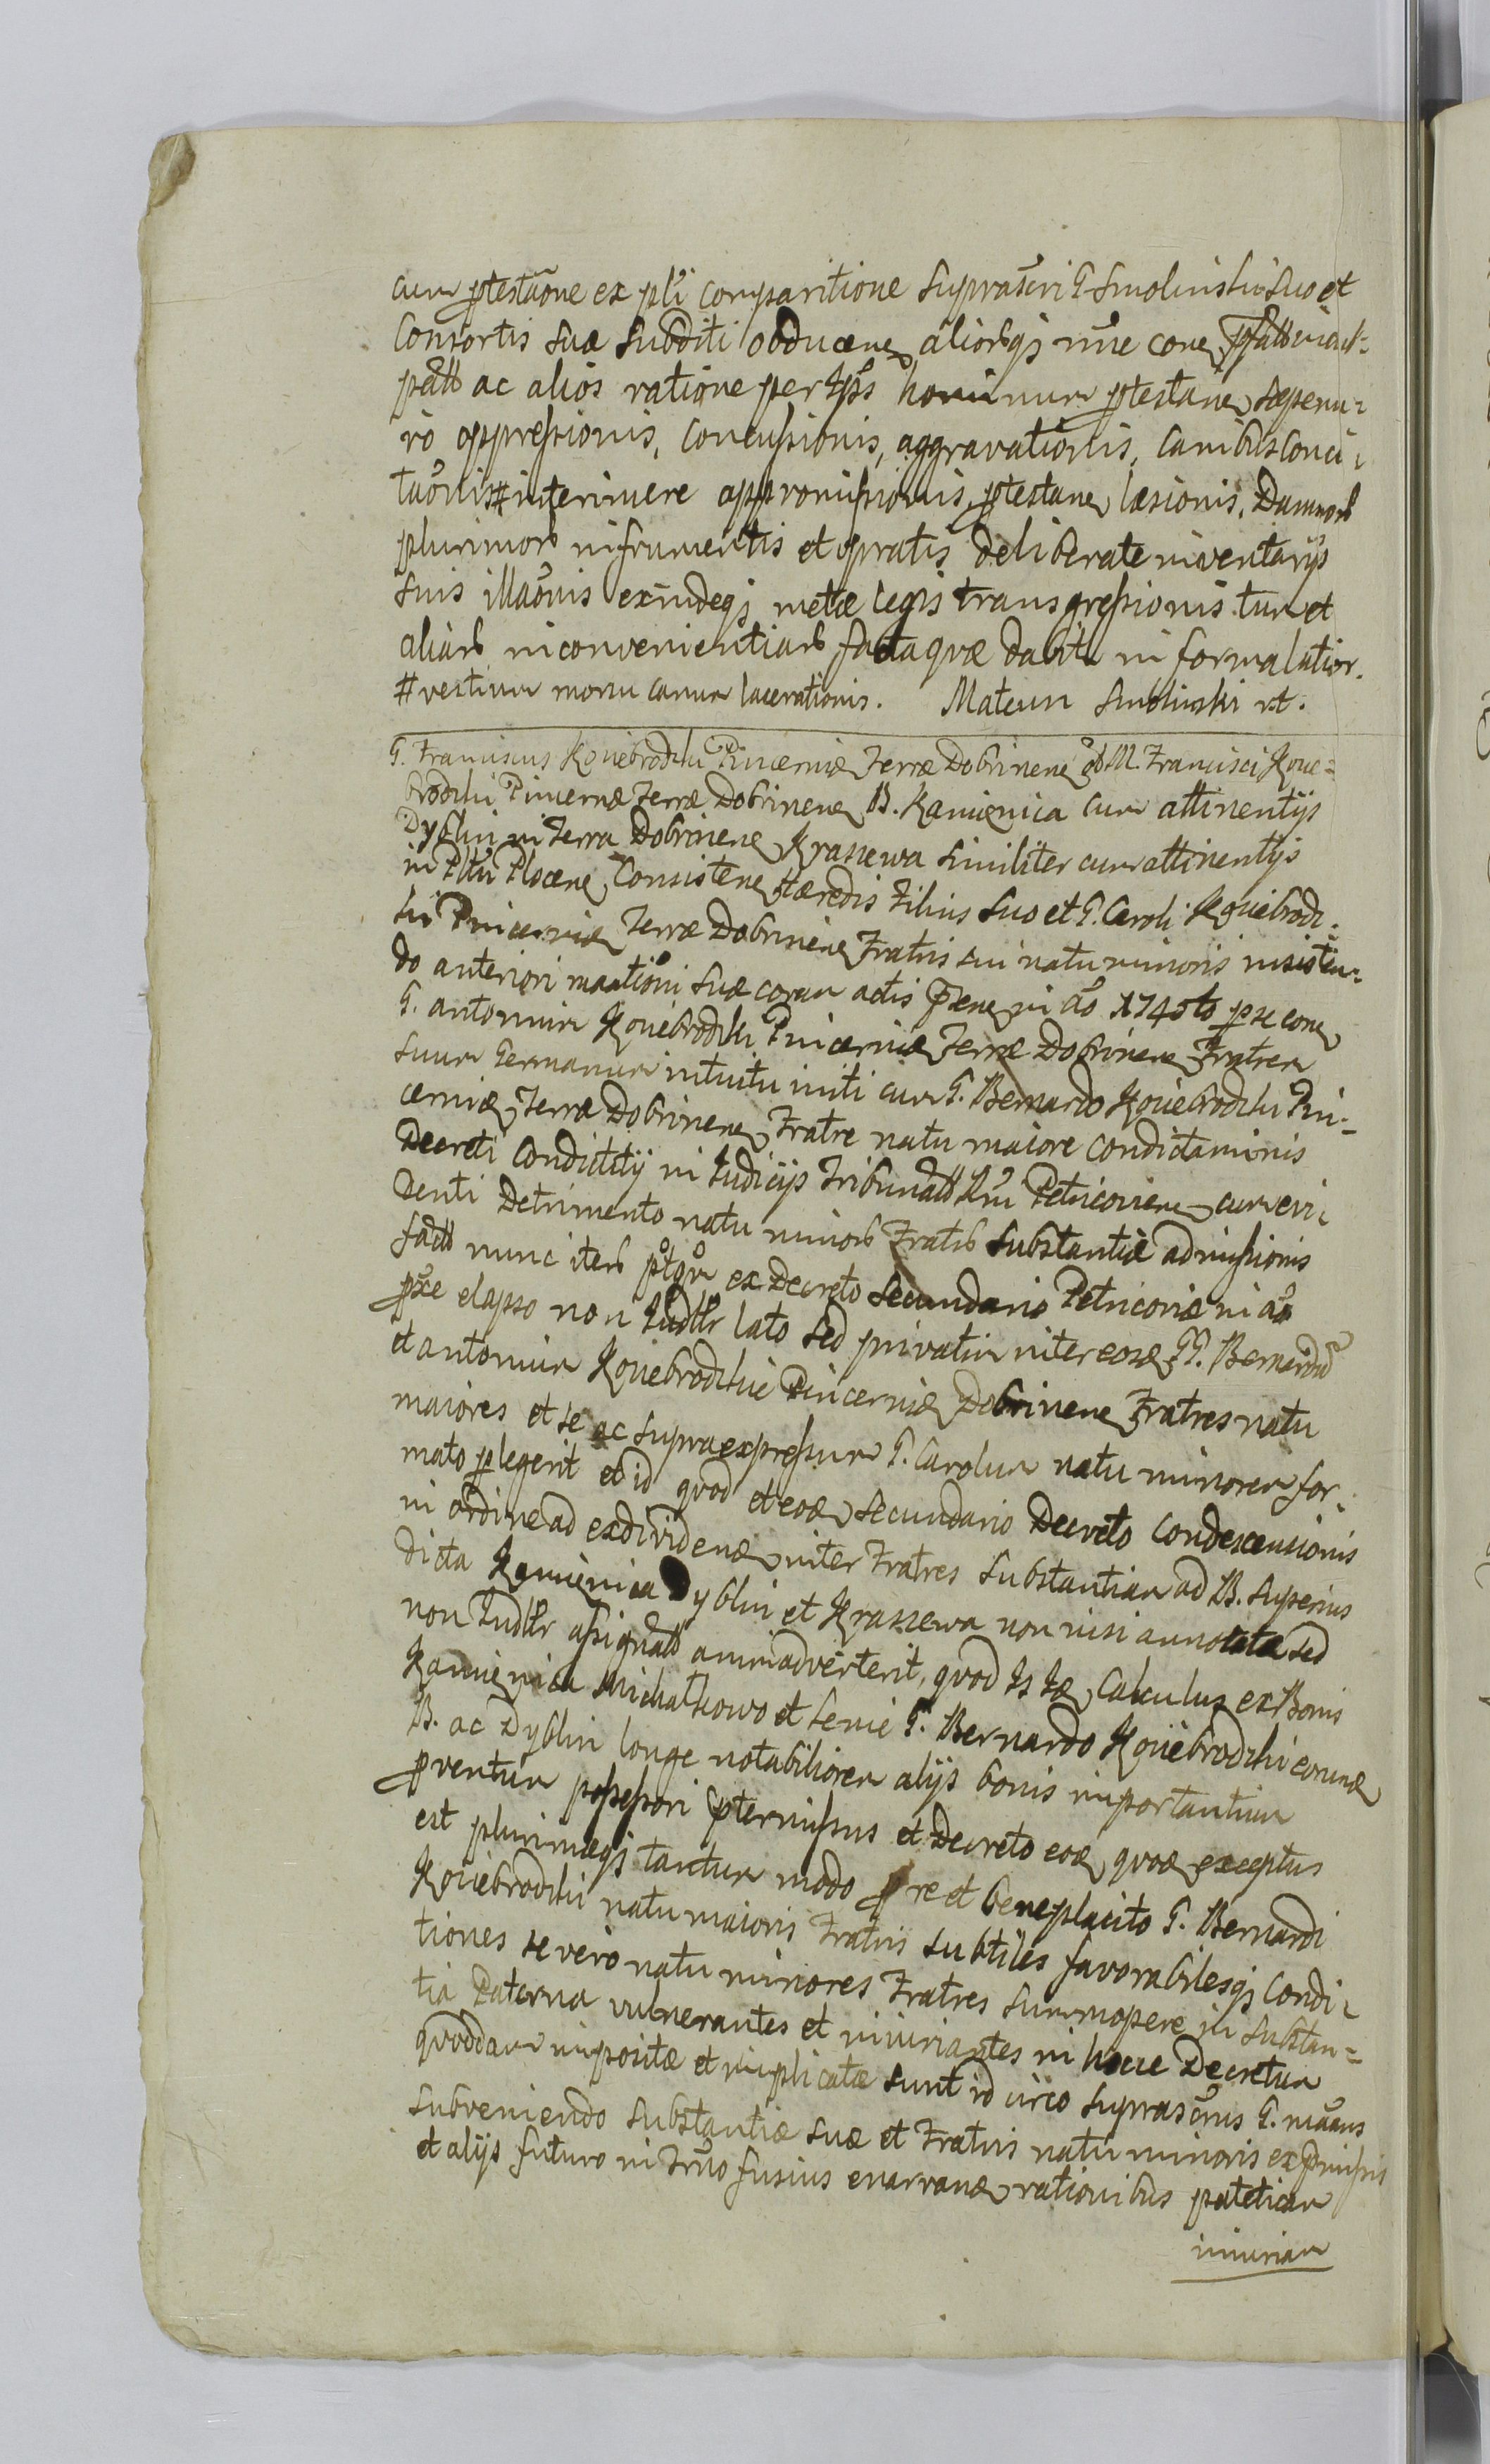 cum ptestaone ex pti comparitione suprascri G Smolinski suo et
Consortis suæ subditi obducen aliorqs nne cone
patt ac alios ratione per Ips hominum ptestane sæpenu=
ro oppressionis, concussionis, aggravationis, canibus conci=
taonis # interimere appromissionis, ptestane læsionis, Damnor
plurimor in frumentis et pratis deliberate inventarijs
suis illaonis exindeqs metæ legis transgressionis tum et
aliar inconvenientiar facta quæ dabit in forma latior.
# vestium morsu canum lacerationis. Mateusz Smolinski rt.
G. Franciscus Koniebrodzki Pincernidæ Terræ Dobrinene ol M. Francisci Konie=
brodzki Pincernæ Terræ Dobrinene B. Kamienica cum attinentijs
Dyblin in Terra Dobrinene Kraszewa similiter cum attinentijs
in Pttu Plocene Consistene Hæredis Filius suo et G. Caroli Koniebrodz=
ki Pincernidæ Terræ Dobrinene Fratris sui natu minoris insisten=
do anteriori maationi suæ coram actis Pene in ao 1740to pse cone
G. Antonium Koniebrodzki Pincernidæ Terræ Dobrinene Fratrem
suum Germanum intuitu initi cum G. Bernardo Koniebrodzki Pin=
cernidæ Terræ Dobrinene Fratre natu maiore condictaminis
Decreti Condictitij in Iudicijs Tribunatt Rni Petricoviene cum evi=
denti Detrimento natu minor Fratrb substantiæ admissionis
factt nunc iterb ptqm ex Decreto Secundario Petricoviæ in ao
pxe elapso non Iudttr lato sed privatim inter eosd GG. Bernardu
et Antonium Koniebrodzkie Pincernidæ Dobrinene Fratres natu
maiores et se ac supra expressum G. Carolum natu minorem for=
mato plegerit et id quod et eod secundario Decreto condescensionis
in ordine ad exdividend inter Fratres substantiam ad B. superius
dicta Kamienica Dyblin et Kraszewa non nisi annotatæ sed
non Iudttr assignatt animadverterit, quod Is Id Calculus ex Bonis
Kamienica Michałkowo et Senie G. Bernardo Koniebrodzki eorund
B. ac Dyblin longe notabiliorem alijs bonis importantium
pventum possessori ptermissus et Decreto eod quod exceptus
est plurimæqs tantum modo p re et beneplacito G. Bernardi
Koniebrodzki natu maioris Fratris subtiles favorabilesqs Condi=
tiones se vero natu minores Fratres summopere in substan=
tia Paterna vulnerantes et iniuriantes in hocce Decretum
quoddam impositæ et implicatæ sunt id circo suprascrus G. maans
subveniendo substantiæ suæ et Fratris natu minoris ex pmissis
et alijs futuro in Trno fusius enarrand rationibus patetiam
iniuriam